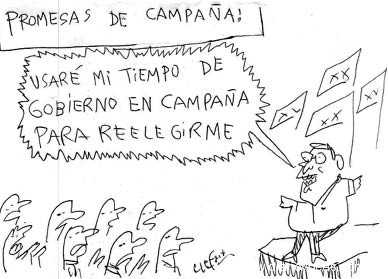 PROMESAS DE CAMPAÑA:
USARÉ MI TIEMPO DE
GOBIERNO EN CAMPAÑA
PARA REELEGIRME
XX
XX
XX
XX